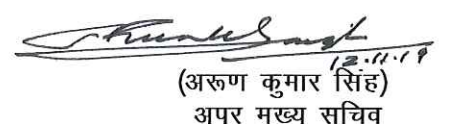 12.11.19
(अरूण कुमार सिंह)
अपर मख्य सचिव